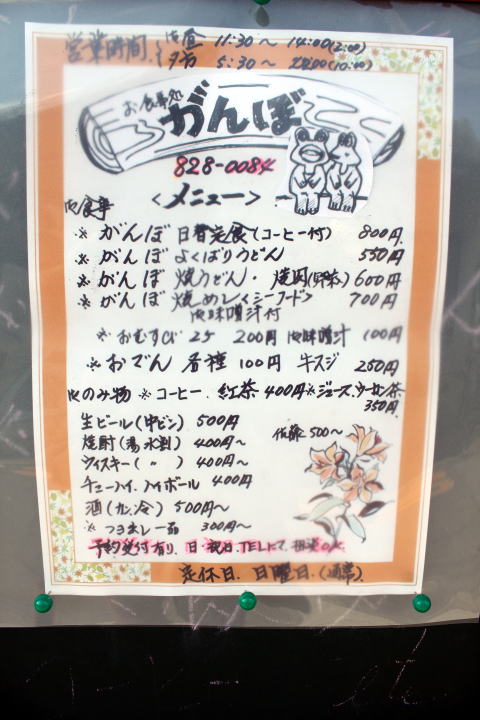 営業時間 昼 11:30～14:00(2:00)
夕方 5:30～22:00(10:00)
お食事処
がんぼ
828-0084
<メニュー>
お食事
※ がんぼ 日替定食(コーヒー付) 800円
※ がんぼ よくばりうどん 550円
※ がんぼ 焼うどん・焼肉(野菜) 600円
※ がんぼ 焼めし(シーフード) 700円
お味噌汁付
※ おむすび 2ケ 200円 お味噌汁 100円
※ おでん 各種 100円 牛スジ 250円
おのみ物 ※コーヒー. 紅茶 400円 ※ジュース.ウーロン茶
350円
生ビール(中ビン) 500円
焼酎(湯水割) 400円～
ウィスキー( 〃 ) 400円～
チューハイ.ハイボール 400円
酒(カン.冷) 500円～
500～
※ つき出し一品 300円～
予約受付有り. 日・祝日.TELにて. 相談OK
定休日. 日曜日.(通常)